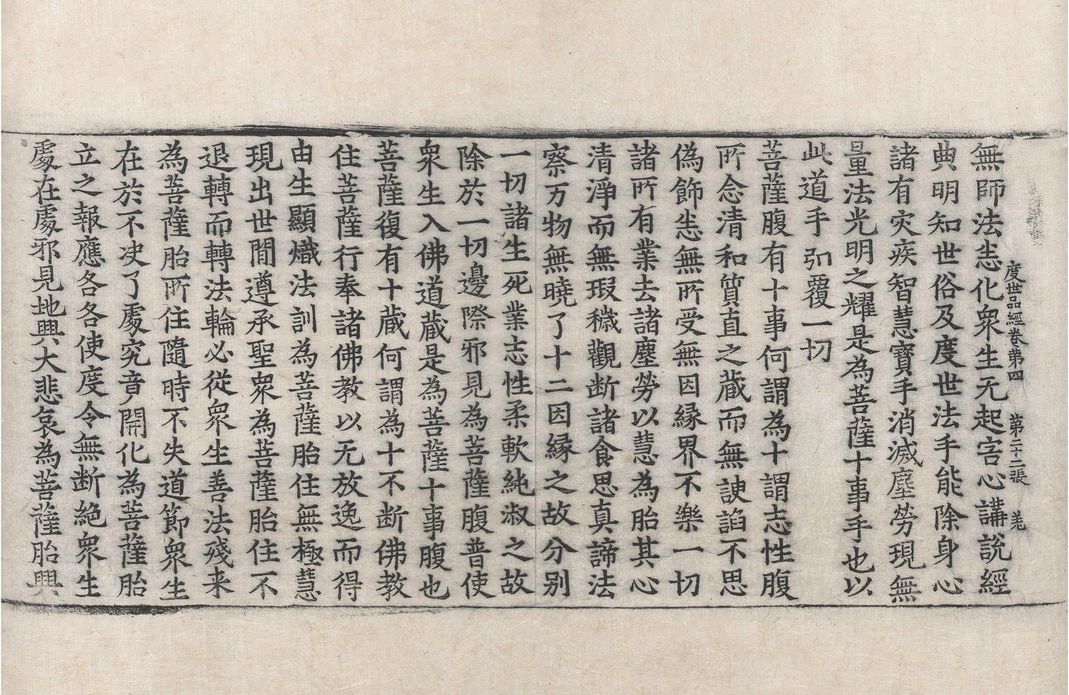 度世品經卷第四 第二十二張 羌
無師法恙化衆生无起害心講說經
典明知世俗及度世法手能除身心
諸有灾疾智慧寶手消滅塵勞現無
量法光明之耀是為菩薩十事手也以
此道手弘覆一切
菩薩腹有十事何謂為十謂志性腹
所念清和質直之藏而無諛諂不思
偽飾恙無所受無因縁界不樂一切
諸所有業去諸塵勞以慧為胎其心
清淨而無瑕穢觀断諸食思真諦法
察万物無曉了十二因縁之故分别
一切諸生死業志性柔軟純淑之故
除於一切邊際邪見為菩薩腹普使
衆生入佛道藏是為菩薩十事腹也
菩薩復有十藏何謂為十不断佛教
住菩薩行奉諸佛教以无放逸而得
由生顯熾法訓為菩薩胎住無極慧
現出世間遵承聖衆為菩薩胎住不
退轉而轉法輪必從衆生善法殘来
為菩薩胎所住隨時不失道節衆生
在於不决了處究音開化為菩薩胎
立之報應各各使度令無断絕衆生
處在處邪見地興大悲哀為菩薩胎興